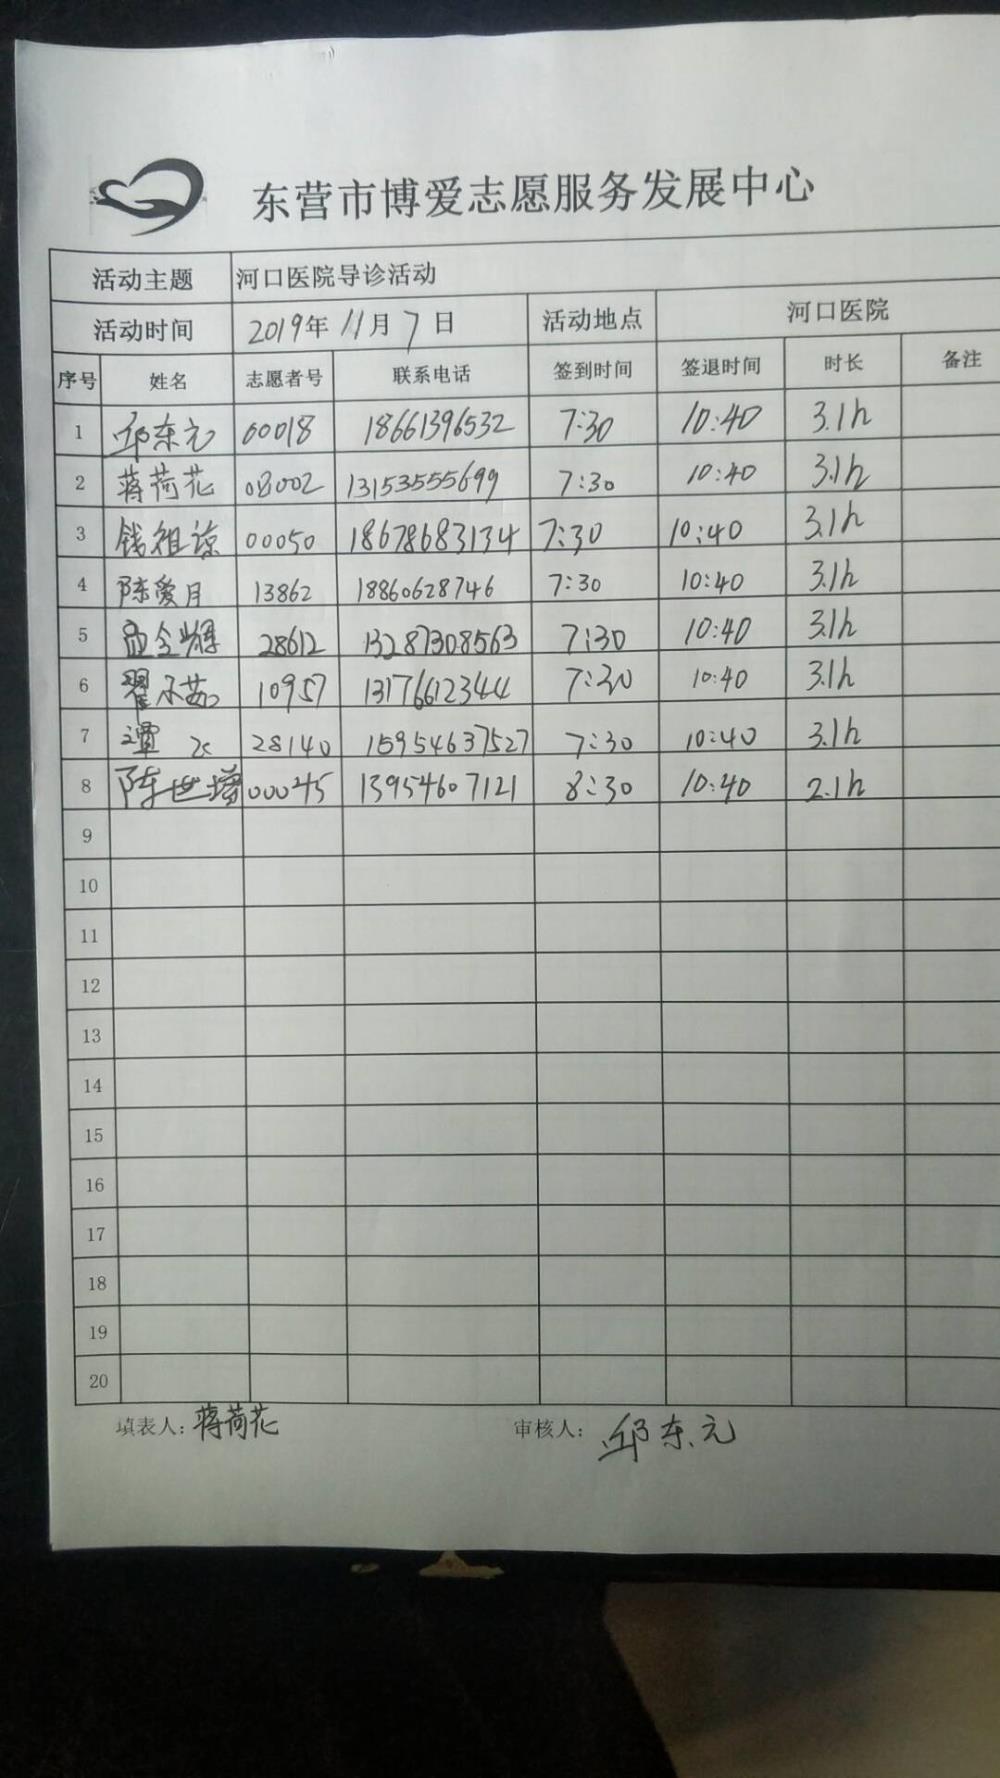 东营市博爱志愿服务发展中心
活动主题 河口医院导诊活动
活动时间 2019年 11月 7日 活动地点 河口医院
序号 姓名 志愿者号 联系电话 签到时间 签退时间 时长 备注
1 邱东元 00018 18661396532 7:30 10:40 3.1h
2 蒋荷花 08002 13153555699 7:30 10:40 3.1h
3 钱祖谅 00050 18678683134 7:30 10:40 3.1h
4 陈爱月 13862 18860628746 7:30 10:40 3.1h
5 28612 13287308563 7:30 10:40 3.1h
6 翟尔茹 10957 13176612344 7:30 10:40 3.1h
7 28140 15954637527 7:30 10:40 3.1h
8 陈世增 00045 13954607121 8:30 10:40 2.1h
9
10
11
12
13
14
15
16
17
18
19
20
填表人: 蒋荷花 审核人: 邱东元